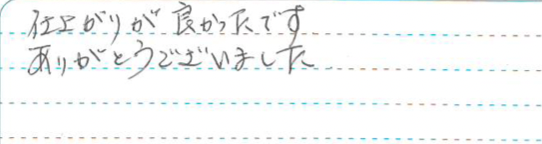 仕上がりが良かったです
ありがとうございました